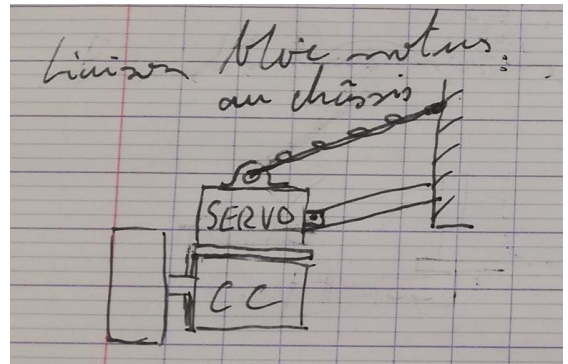 Liaison bloc moteur :
au châssis
SERVO
CC